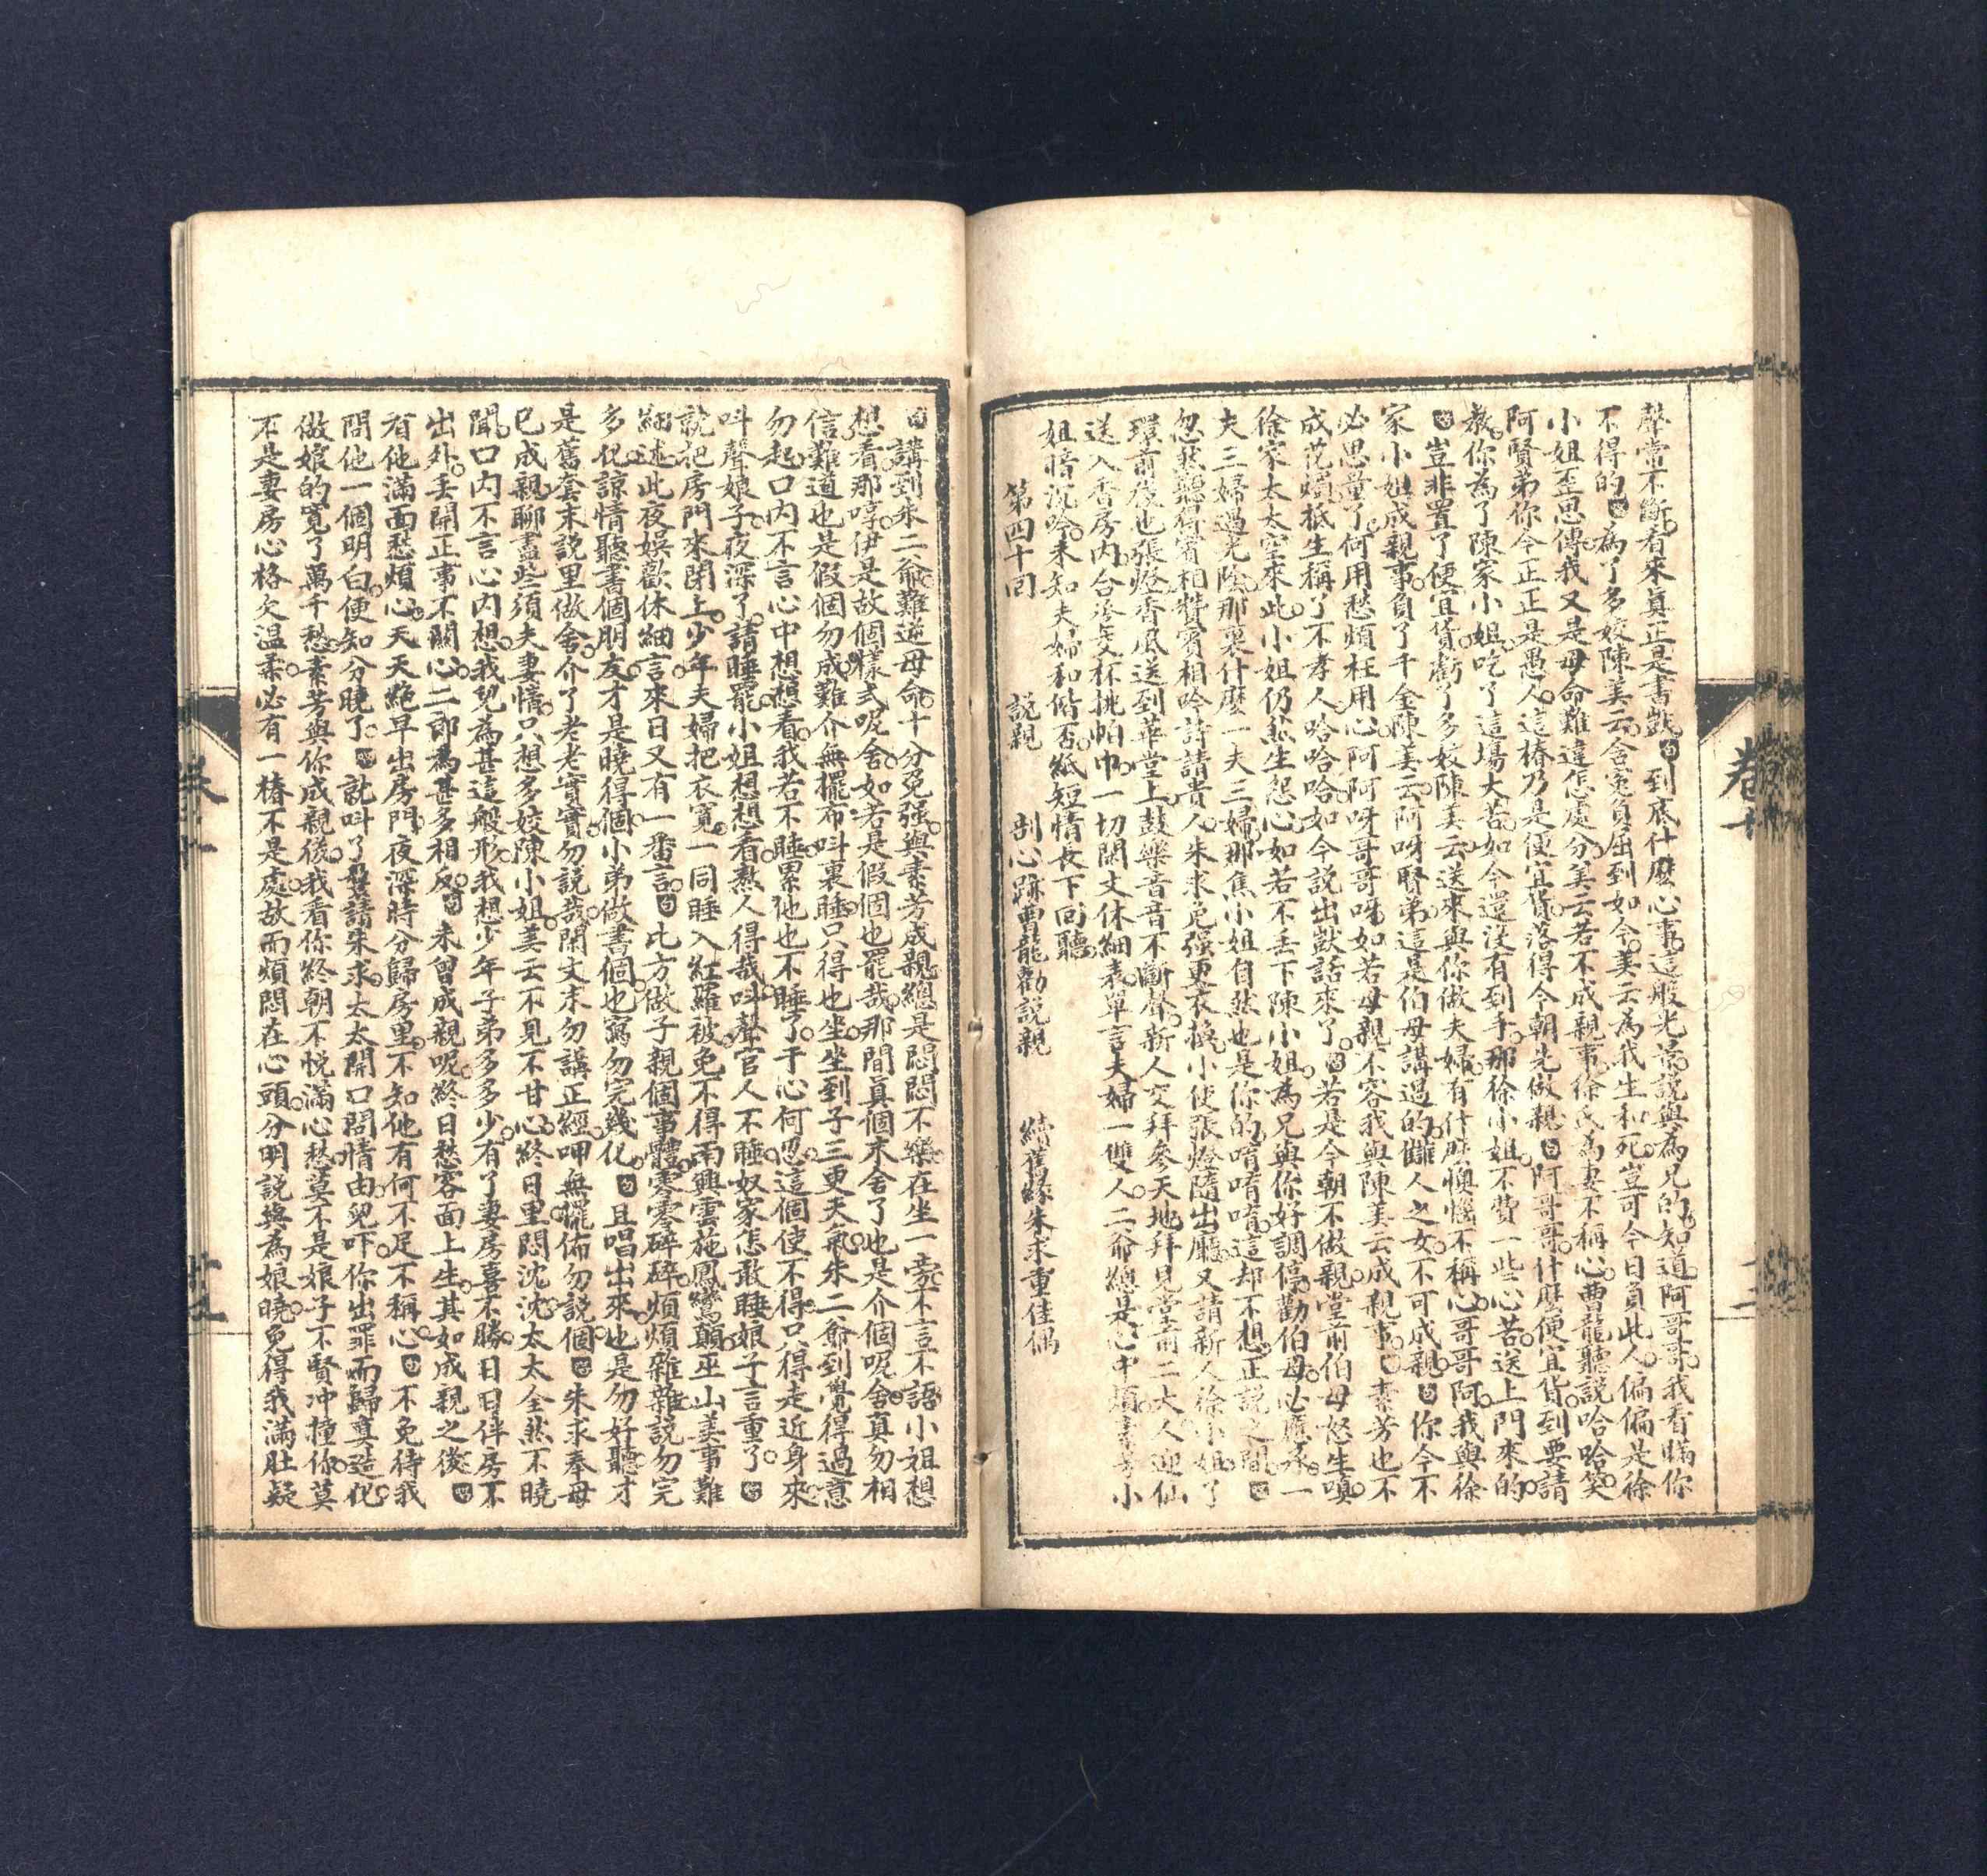 聲常不斷看來真正是書獃白到底什麼心事這般光景說與為兄的知道阿哥哥我看瞞你
不得的唱為了多姣陳美云含寃負屈到如今美云為我生和死豈可今日負此人偏偏是徐
小姐歪思傳我又是母命難違怎處分美云若不成親事徐氏為妻不稱心曹龍聽說哈哈笑
阿賢弟你今正正是愚人這樁乃是便宜貨落得今朝先做親白阿哥哥什麼便宜貨到要請
教你為了陳家小姐吃了這場大苦如今還沒有到手那徐小姐不費一些心苦送上門來的
豈非置了便宜貨虧了多姣陳美云送來與你做夫婦有什麼懊惱不稱心哥哥阿我與徐
家小姐成親事負了千金陳美云阿呀賢弟這是伯母講過的讎人之女不可成親白你今不
必思量了何用愁煩枉用心阿阿呀哥哥呀如若母親不容我與陳美云成親事素芳也不
成花燭抵生稱了不孝人哈哈哈如今說出獃話來了白若是今朝不做親堂前伯母怒生嗔
徐家太太空來此小姐仍然生怨心如若不丟下陳小姐為兄與你好調停勸伯母必應承一
夫三婦過光陰那裏什麼一夫三婦那焦小姐自然也是你的唷唷唷這却不想正說之間
忽然聽得賓相贊賓相吟詩請貴人朱求免强更衣換小使張燈隨出廳又請新人徐小姐了
環前後也張燈香風送到華堂上鼓樂音音不斷聲新人交拜參天地拜見堂前二大人迎仙
送入香房內合巹交杯挑帕巾一切閑文休細表單言夫婦一雙人二爺總是心中煩素芳小
姐暗沉吟未知夫婦和偕否紙短情長下回聽
第四十回 說親 剖心跡曹龍勸說親 續舊緣朱求重佳偶
卷十
講到朱二爺難逆母命十分免强與素芳成親總是悶悶不樂在坐一傍不言不語小姐想
想看那哼伊是故個樣式呢舍如若是假個也罷哉那間真個末舍了也是介個呢舍真勿相
信難道也是假個勿成難介無擺布呌裏睡只得也坐坐到子三更天氣朱二爺到覺得過意
勿起口內不言心中想想看我若不睡累他也不睡了于心何忍這個使不得只得走近身來
呌聲娘子夜深了請睡罷小姐想想看熬人得哉呌聲官人不睡奴家怎敢睡娘子言重了
說把房門來閉上少年夫婦把衣寬一同睡入紅羅被免不得雨興雲施鳳鸞顛巫山美事難
細述此夜娛歡休細言來日又有一番言白比方做子親個事體零零碎碎煩煩雜雜說勿完
多化諒情聽書個朋友才是曉得個小弟做書個也寫勿完幾化且唱出來也是勿好聽才
是舊套末說里做舍介了老老實實勿說哉閑文末勿講正經呷無擺佈勿說個朱求奉母
已成親聊盡些須夫妻情只想多姣陳小姐美云不見不甘心終日里悶沈沈太太全然不曉
聞口內不言心內想我兒為甚這般形我想少年子弟多多少有了妻房喜不勝日日伴房不
出外丟開正事不關心二郎為甚多相反白未曾成親呢終日愁容面上生其如成親之後
看他滿面愁煩心天天絶早出房門夜深時分歸房里不知他有何不足不稱心不免待我
問他一個明白便知分曉了就呌了鬟請朱求太太開口問情由兒吓你出罪而歸莫造化
做娘的寬了萬千愁素芳與你成親後我看你終朝不悅滿心愁莫不是娘子不賢冲撞你莫
不是妻房心格欠溫柔必有一樁不是處故而煩悶在心頭分明說與為娘曉免得我滿肚疑